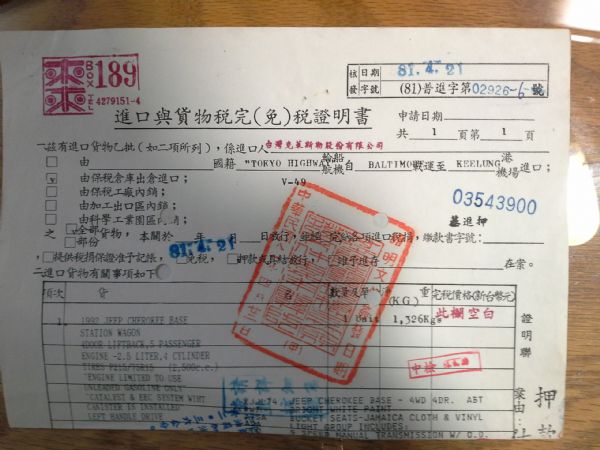 BOX 189
TEL 4279151-4
核發 日期 81. 4. 21
字號 (81)普進字第02926-6號
進口與貨物稅完(免)稅證明書
申請日期
共 1 頁第 1 頁
一茲有進口貨物乙批(如二項所列),係進口人台灣克萊斯勒股份有限公司
由 國籍 "TOKYO HIGHWAY 輪船航機自 BALTIMO 載運至 KEELUNG 港機場 進口;
V 由保稅倉庫出倉進口; V-49
由保稅工廠內銷;
由加工出口區內銷;
由科學工業園區內銷;
03543900
基進押
之 全部貨物 部份 ,本關於 年 月 日放行,並經 完納各項進口稅捐,繳款書字號:
81. 4. 21
提供稅捐保證准予記帳, 免稅, 押款放行, 准予進存 在案。
二進口貨物有關事項如下
項次 貨 名 數量及單位 重 (KG.) 完稅價格(新台幣元)
1. 1992 JEEP CHEROKEE BASE 1 Unit 1,326Kgs 此欄空白
STATION WAGON
4DOOR LIFTBACK,5 PASSENGER
ENGINE -2.5 LITER,4 CYLINDER
TIRES P215/75R15 (2,500c.c.)
"ENGINE LIMITED TO USE
UNLEADED GASOLINE ONLY"
"CATALYST & EEC SYSTEM WIHT
CANISTER IS INSTALLED
LEFT HAND DRIVE
74 JEEP CHEROKEE BASE - 4WD 4DR. A5T
BRIGHT WHITE PAINT
SEATS-JAMAICA CLOTH & VINYL
LIGHT GROUP INCLUDES:
MANUAL TRANSMISSION W/ O.D.
證明聯
案由:
押款